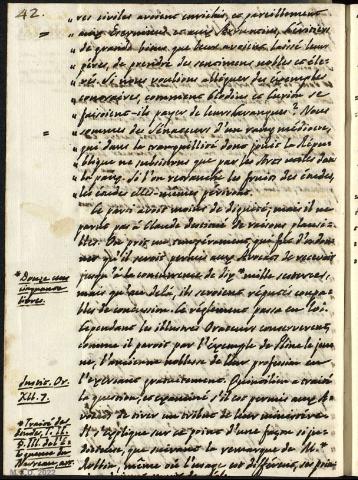 42.
res civiles avoient enrichis, et pareillement
aux
de grands biens que leur avoient laissé leurs
pères, de prendre des sentimens nobles et éle-
vés. Si nous voulions alléguer des exemples
contraires, combien Clodius et Curion se
faisoient-ils payer de leurs harangues? Nous
sommes des Sénateurs d'un rang médiocre,
qui dans la tranquillité dont jouit la Répu-
blique ne subsistons que par les Arts
Si l'on retranche les fruits des études,
les études elles-mêmes périront.
Ce parti avoit moins de dignité, mais il ne
parut pas à Claude destitué de raisons plausi-
bles. On prit un tempérament, qui fut d'ordon-
ner qu'il seroit permis aux Avocats de recevoir
jusqu'à la concurrence de dix* mille sesterces,
mais qu'au delà, ils seroient réputés coupa-
bles de concussion. Le règlement passa en Loi.
Cependant les illustres Orateurs conservèrent,
comme il paroit par l'exemple de Pline le jeu-
ne, l'ancienne noblesse de leur profession en
l'exerçant gratuitement. Quintilien a traité
la question, et examiné s'il est permis aux A-
vocats de tirer un tribut de leur ministère.
Il s'explique sur ce point d'une façon si ju-
dicieuse, que suivant la remarque de M.*
Rollin, même où l'usage est différent, ses prin
* Douze cens
cinquante
livres.
Instit. Or.
XII. 7.
* Traité des
Etudes,